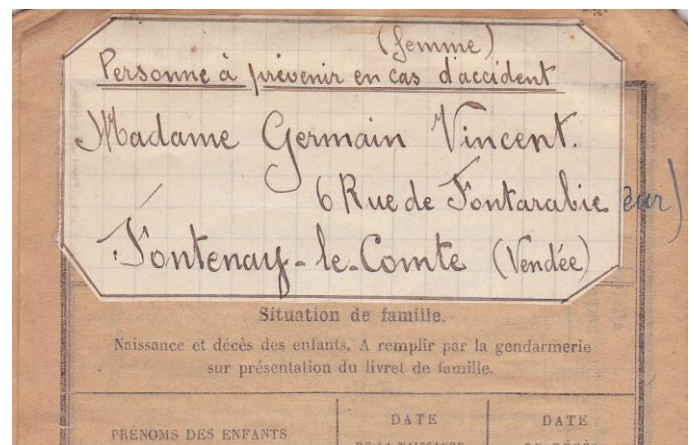 (femme)
Personne à prévenir en cas d'accident
Madame Germain Vincent.
6 Rue de Fontarabie
Fontenay-le-Comte (Vendée)
Situation de famille.
Naissance et décès des enfants. A remplir par la gendarmerie
sur présentation du livret de famille.
PRÉNOMS DES ENFANTS
DATE
DATE